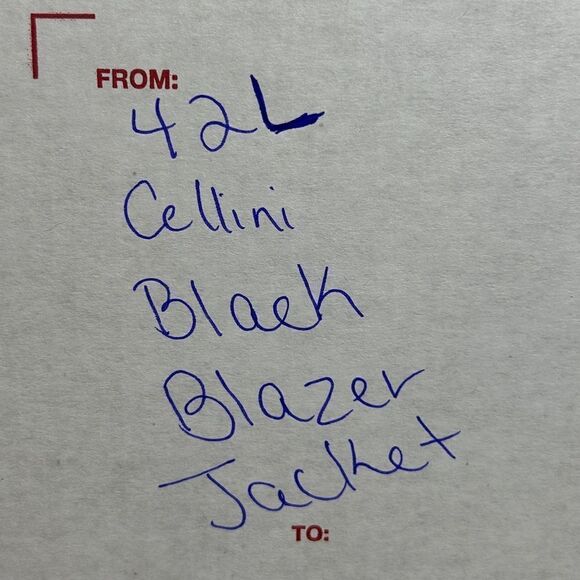 FROM:
42L
Cellini
Black
Blazer
Jacket
TO: